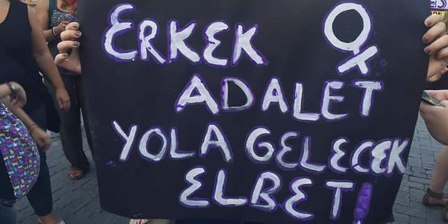 ERKEK ♀
ADALET
YOLA GELECEK
ELBET!